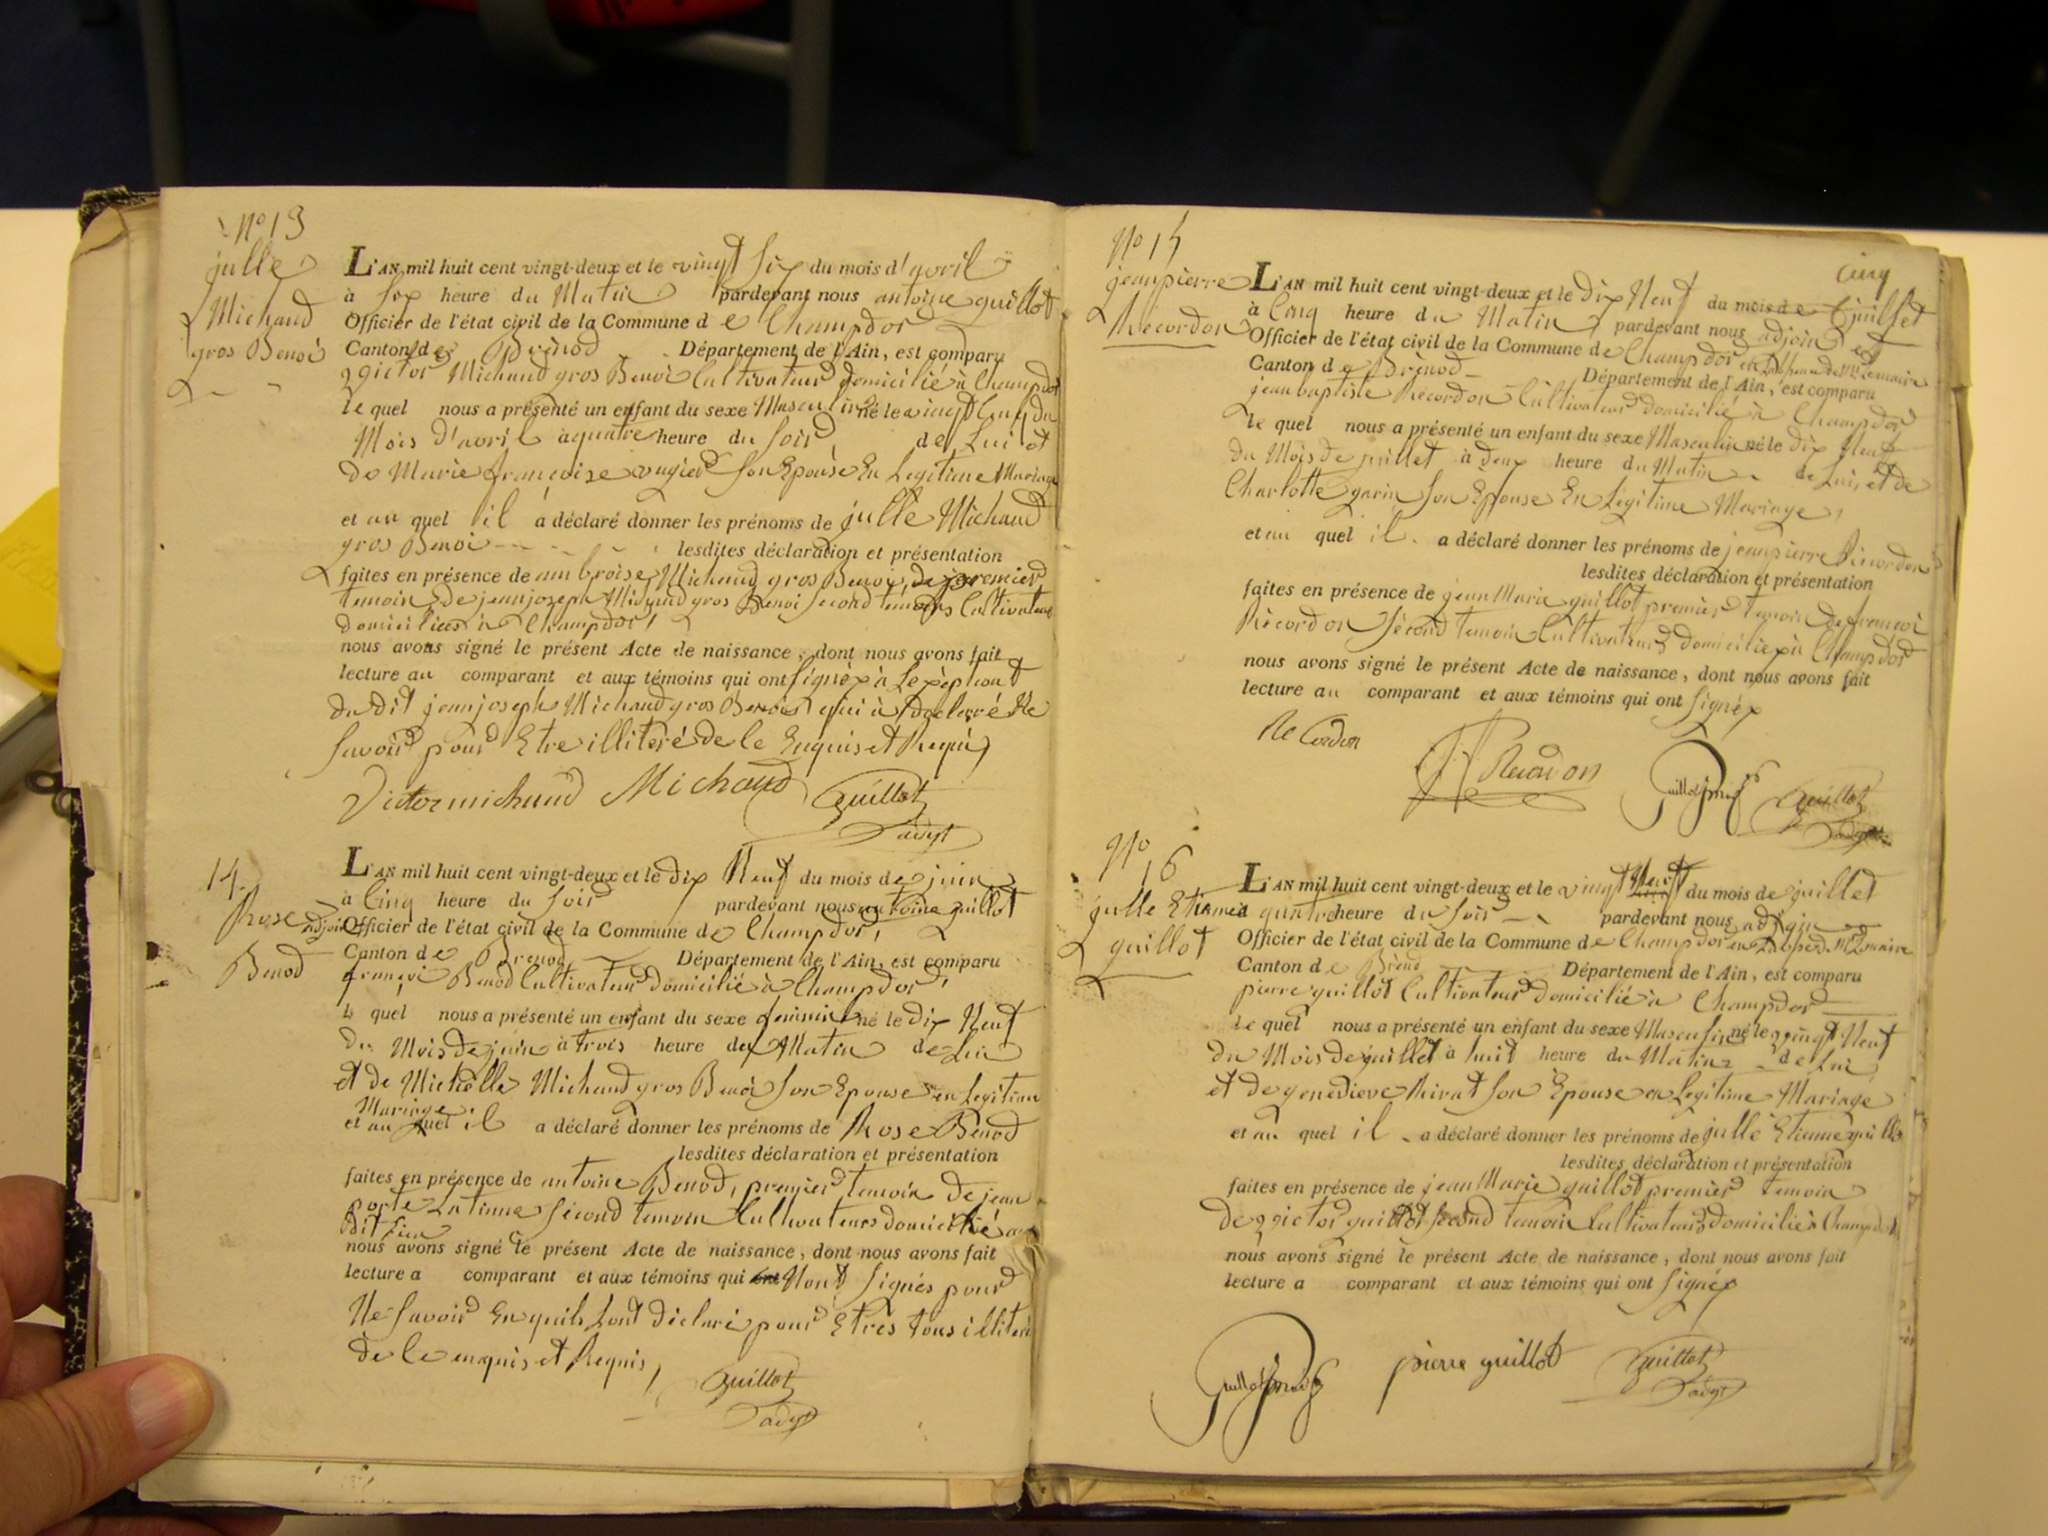 No 13
julle
Michaud
gros Benoi
L'AN mil huit cent vingt-deux et le vingt six du mois d'avril
à six heure du Matin pardevant nous antoine guillot
Officier de l'état civil de la Commune de Champdor
Canton de Brénod Département de l'Ain, est comparu
victor Michaud gros Benoi Cultivateur domicilié à Champdor
le quel nous a présenté un enfant du sexe Masculin né le vingt Cinq du
Mois d'avril à quatre heure du soir de Lui et
de Marie françoise son Epouse En Legitime Mariage
et au quel il a déclaré donner les prénoms de julle Michaud
gros Benoi lesdites déclaration et présentation
faites en présence de ambroise Michaud gros Benoi, de premier
temoin de jean joseph Michaud gros Benoi second temoins Cultivateur
domiciliés à Champdor,
nous avons signé le présent Acte de naissance, dont nous avons fait
lecture au comparant et aux témoins qui ont signé à
du dit jean joseph Michaud gros Benoi qui à declaré Ne
savoir pour Etre illiteré de le Enquis et Requis
Victor michaud Michaud Guillot
adjt
14.
Rose
Benod
L'AN mil huit cent vingt-deux et le dix Neuf du mois de juin
à Cinq heure du soir pardevant nous antoine guillot
adjoin Officier de l'état civil de la Commune de Champdor,
Canton de Brenod Département de l'Ain, est comparu
françoi Benod Cultivateur domicilié à Champdor,
le quel nous a présenté un enfant du sexe feminin né le dix Neuf
du Mois de juin à trois heure du Matin de Lui
et de Michelle Michaud gros Benoi son Epouse en Legitime
Mariage
et au quel il a déclaré donner les prénoms de Rose Benod
lesdites déclaration et présentation
faites en présence de antoine Benod, premier temoin de jean
porte Latinne second temoin Cultivateurs domicilié au
dit Lieu
nous avons signé le présent Acte de naissance, dont nous avons fait
lecture a comparant et aux témoins qui ont Nont signés pour
Ne savoir En quils Lont déclaré pour Etres tous illiteré
de le enquis et Requis,
Guillot
adjt
No 15
jean pierre
Récordon
cinq
L'AN mil huit cent vingt-deux et le dix Neuf du mois de juillet
à Cinq heure du Matin pardevant nous adjoin
Officier de l'état civil de la Commune de Champdor
Canton de Brénod Département de l'Ain, est comparu
jean baptiste Récordon Cultivateur domicilié à Champdor
le quel nous a présenté un enfant du sexe Masculin né le dix Neuf
du Mois de juillet à deux heure du Matin de Lui, et de
Charlotte garin son Epouse En Legitime Mariage,
et au quel il a déclaré donner les prénoms de jean pierre Récordon
lesdites déclaration et présentation
faites en présence de jean Marie guillot premier temoin de francoi
Récordon second temoin Cultivateurs domicilié à Champdor
nous avons signé le présent Acte de naissance, dont nous avons fait
lecture au comparant et aux témoins qui ont signé
Re Cordon
Recordon
Guillot Guillot
No
16
julle Etienne
guillot
L'AN mil huit cent vingt-deux et le vingt Neuf du mois de juillet
à quatre heure du soir pardevant nous adjoin
Officier de l'état civil de la Commune de Champdor
Canton de Brénod Département de l'Ain, est comparu
pierre guillot Cultivateur domicilié à Champdor
le quel nous a présenté un enfant du sexe Masculin né le vingt Neuf
du Mois de juillet à huit heure du Matin de Lui
et de genevieve Rivat son Epouse en Legitime Mariage
et au quel il a déclaré donner les prénoms de julle Etienne guillot
lesdites déclaration et présentation
faites en présence de jean Marie guillot premier temoin
de victor guillot second temoin Cultivateurs domicilié à Champdor
nous avons signé le présent Acte de naissance, dont nous avons fait
lecture a comparant et aux témoins qui ont signé
Guillot pierre guillot Guillot
adjt